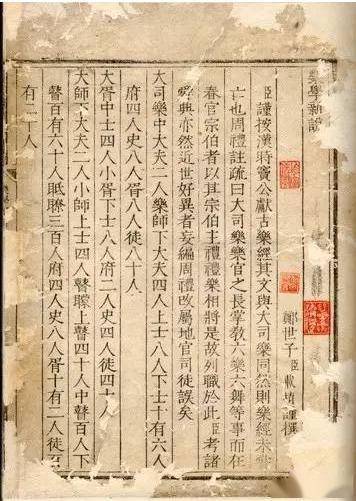 樂學新說
鄭世子臣載堉謹撰
臣謹按漢時竇公獻古樂經其文與大司樂同然則樂經未嘗
亡也周禮註疏曰大司樂樂官之長掌敎六樂六舞等事而在
春官宗伯者以其宗伯主禮禮樂相將是故列職於此臣考諸
舜典亦然近世好異者妄編周禮改屬地官司徒誤矣
大司樂中大夫二人樂師下大夫四人上士八人下士十有六人
府四人史八人胥八人徒八十人
大胥中士四人小胥下士八人府二人史四人徒四十人
大師下大夫二人小師上士四人瞽矇上瞽四十人中瞽百人下
瞽百有六十人眡瞭三百人府四人史八人胥十有二人徒百
有二十人